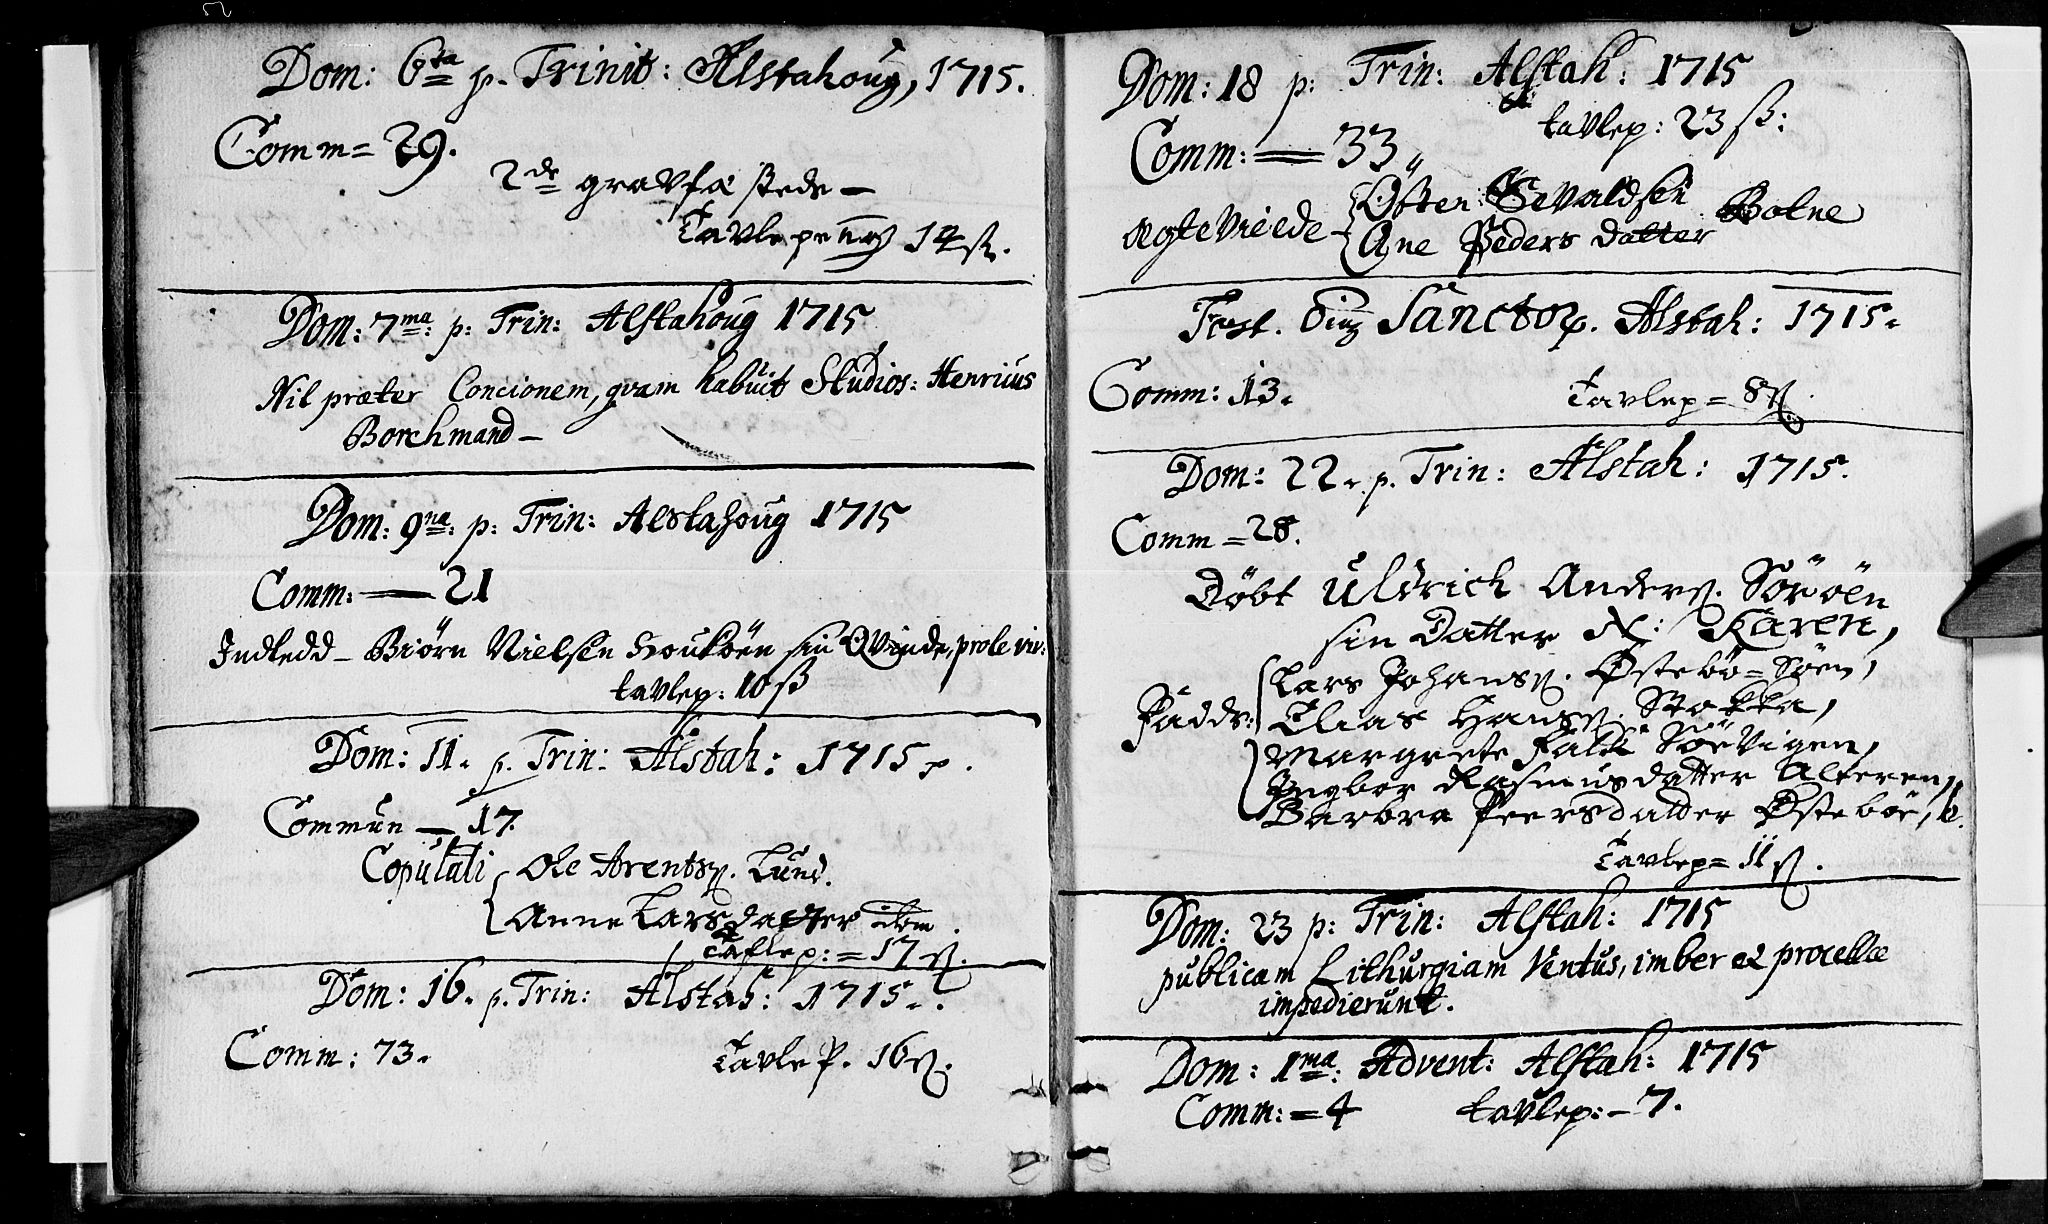 Dom: 6ta p. Trinit: Alstahoug, 1715.
Comm = 29.
2de gravfæstede –
Tavlepeng 14 ß.
Dom: 7ma: p: Trin: Alstahoug 1715
Nil præter Concionem, qvam habuit Studios: Henricus
Borchmand –
Dom: 9na: p: Trin: Alstahoug 1715
Comm: — 21
Indledd – Biörn Nielsen sin Qvinde, prole vir:
tavlep: 10 ß
Dom: 11. p. Trin: Alstah: 1715.
Commun — 17.
Copulati { Ole Arents. Lund.
Anne Larsdatter
Taflep: = 17 ß.
Dom: 16. p. Trin: Alstah: 1715.
Comm: 73. Tavlep. 16 ß.
Dom: 18 p: Trin: Alstah: 1715
tavlep: 23 ß:
Comm: — 33
ægteviede { Östen Sevaldsen Botne
Ane Peders datter
Fest. Sanctor. Alstah: 1715.
Comm: 13. Tavlep = 8 ß.
Dom: 22. p. Trin: Alstah: 1715.
Comm = 28.
Döbt Uldrich Anders. Söröen
sin Datter N: Karen,
Fadd: { Lars Johans. Östebö = Söen,
Elias Hans. Stokka,
Margrete Falk Söevigen,
Ingbor Rasmusdatter Alteren,
Barbra Peersdatter Östeböe,
Tavlep = 11 ß.
Dom: 23 p: Trin: Alstah: 1715
publicam Lithurgiam Ventus, imber et procellæ
impedierunt.
Dom: 1ma: Advent: Alstah: 1715
Comm: = 4 tavlep: – 7.